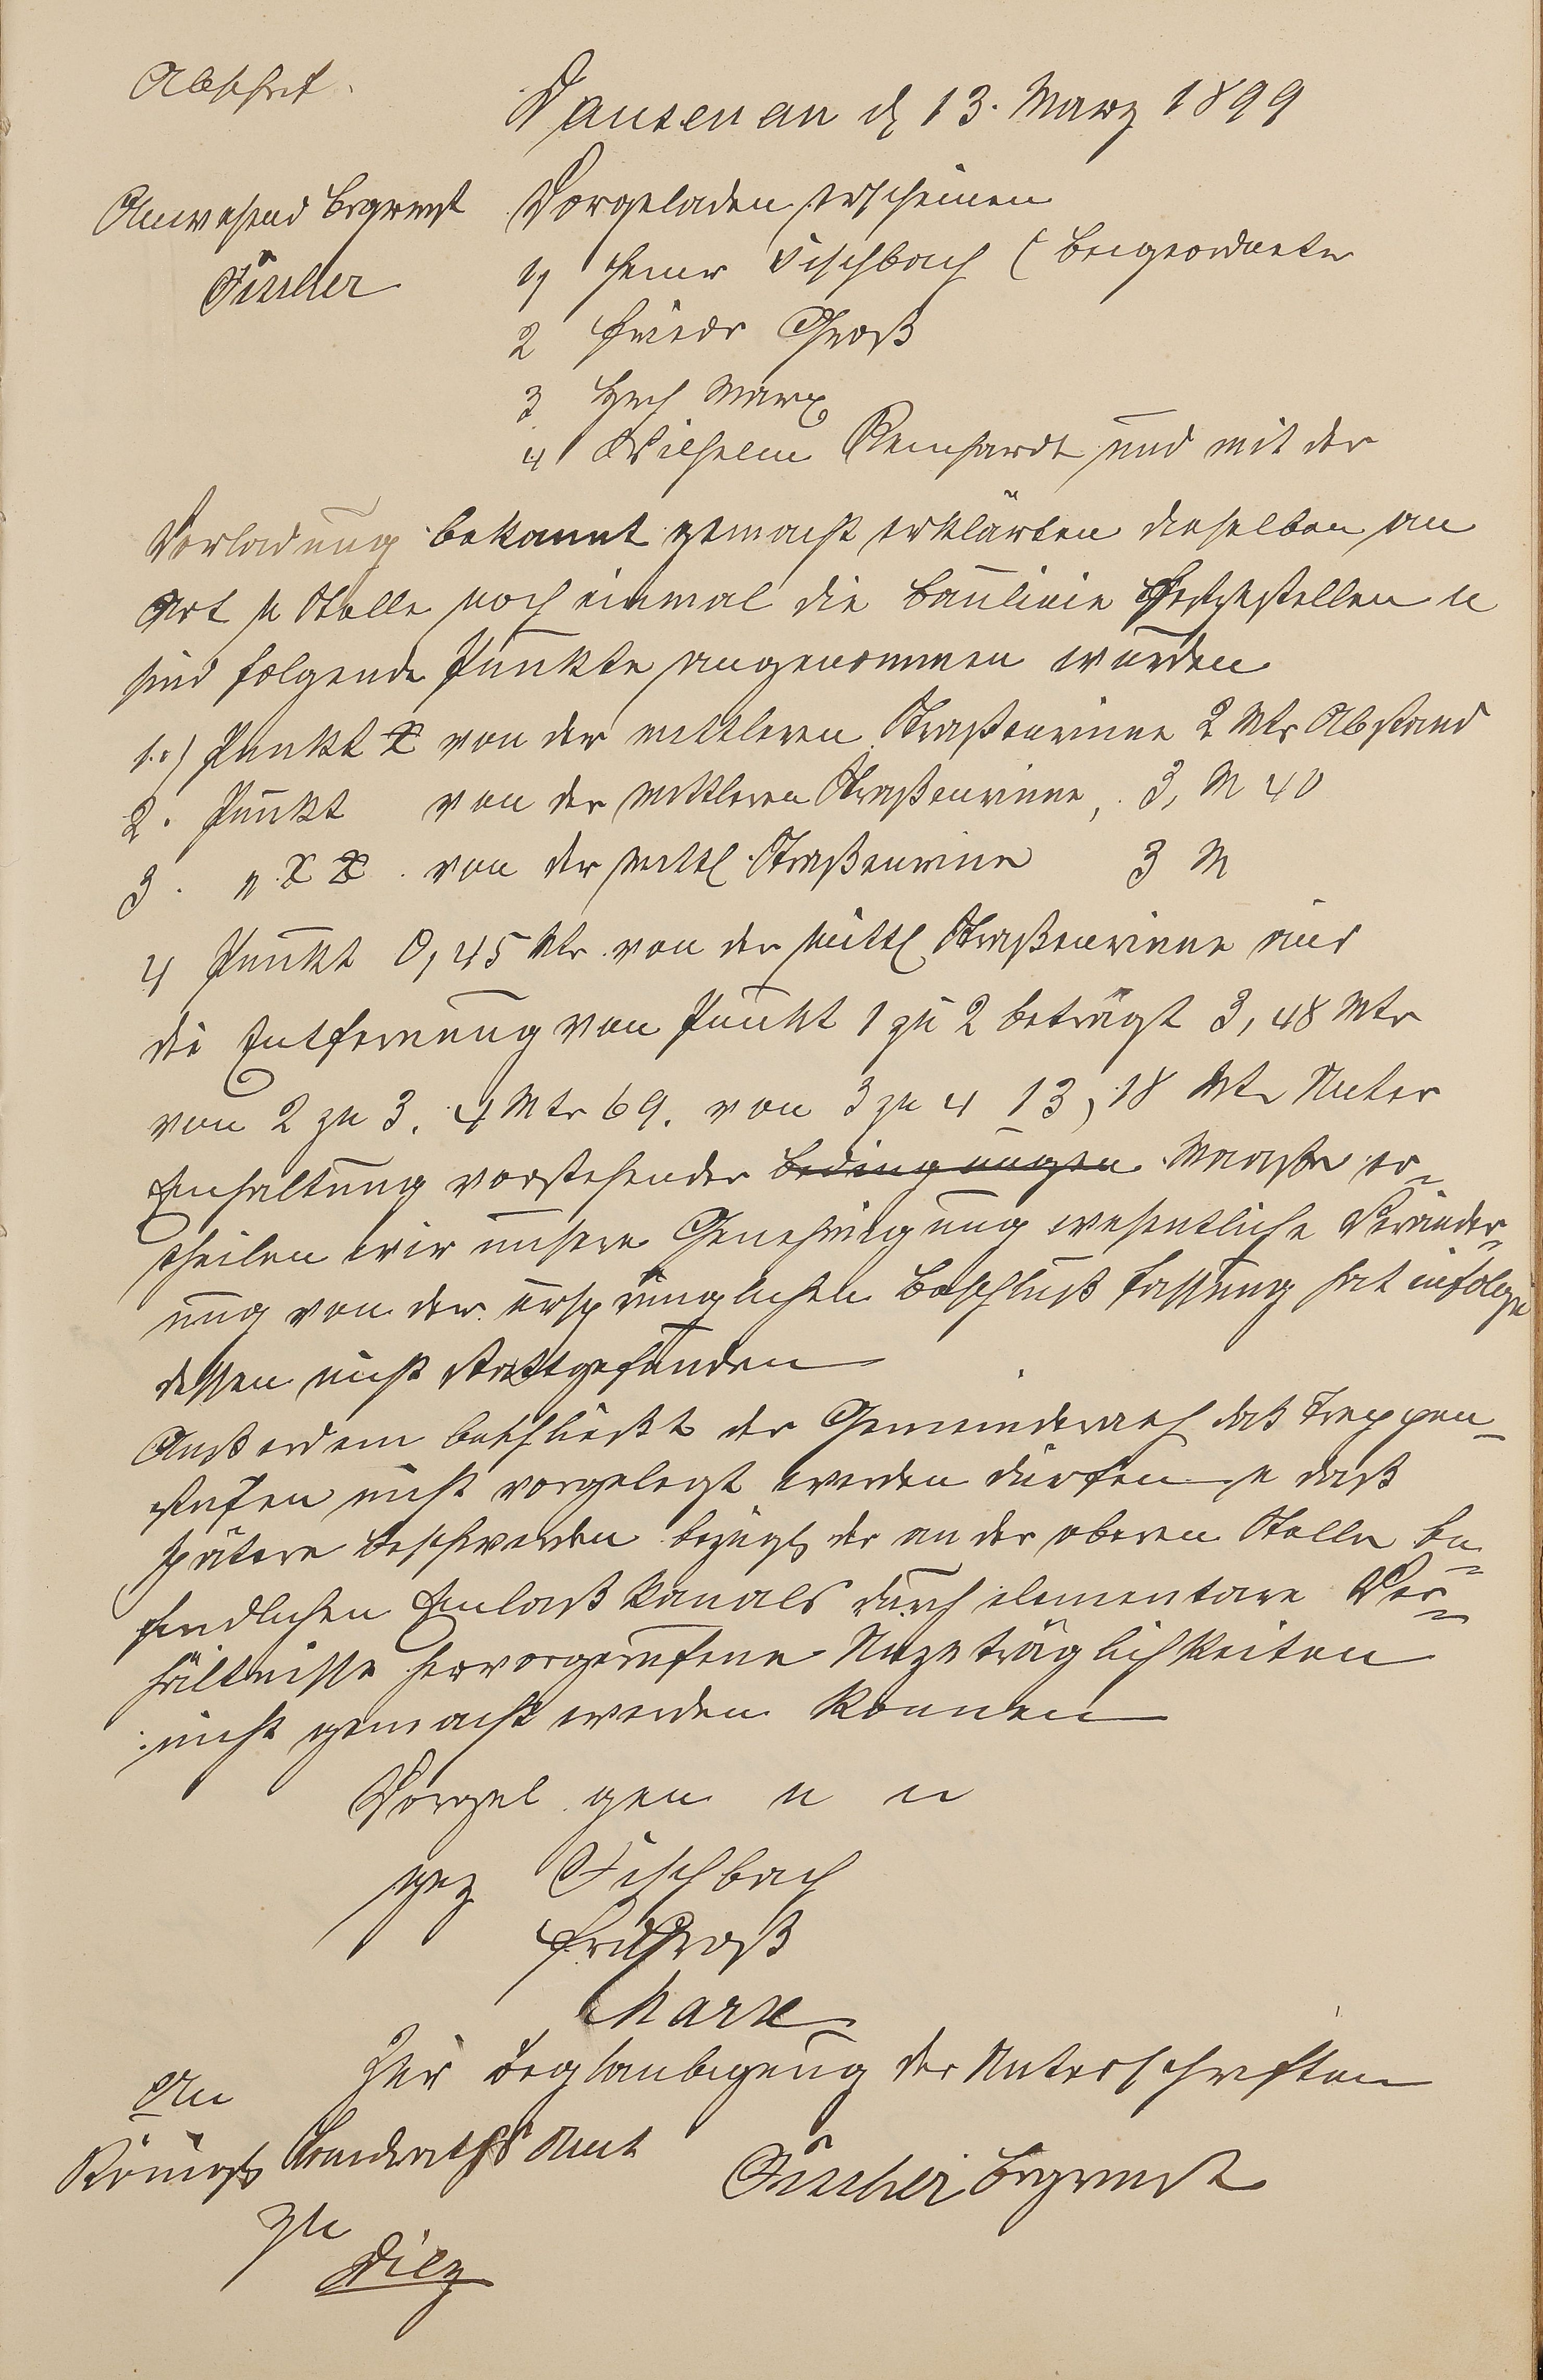 Abschrift
Dausenau d 13. März 1899
Anwesend Brgrmst
Fischer
Vorgeladen erscheinen
1) Herr Fischbach (Beigeordneter
2 Friedr Groß
3 Hch Marx
4 Wilhelm Reinhardt und mit der
Vorladung bekannt gemacht erklärten dieselben an
Ort u Stelle noch einmal die Baulinie festzustellen u
sind folgende Punkte angenommen wurden
1.) Punkt X von der mittleren Straßenrinne 2 Mtr Abstand
2. Punkt von der mittleren Straßenrinne, 3, M 40
3. " X X. von der mittl Straßenrinne 3 M
4 Punkt 0,45 Mtr von der mittl Straßenrinne aus
die Entfernung von Punkt 1 zu 2 beträgt 3,48 Mtr
von 2 zu 3. 4 Mtr 69. von 3 zu 4 13,18 Mtr Unter
Einhaltung vorstehender Bedingungen Maaße er-
theilen wir unsere Genehmigung wesentliche Veränder-
ung von der ursprünglichen Beschlußfassung hat infolge
dessen nicht stattgefunden
Außerdem beschließt der Gemeinderath daß Treppen-
stufen nicht vorgelegt werden dürfen u daß
spätere Beschwerden bezügl der an der oberen Stelle be-
findlichen Einlaßkanals durch elementare Ver-
hältnisse hervorgerufene Unzuträglichkeiten
nicht gemacht werden können
Vorgel gen u u
gez Fischbach
Frd Groß
Marx
Zur Beglaubigung der Unterschriften
An
Königl Landraths Amt
Fischer Brgrmst
zu
Diez